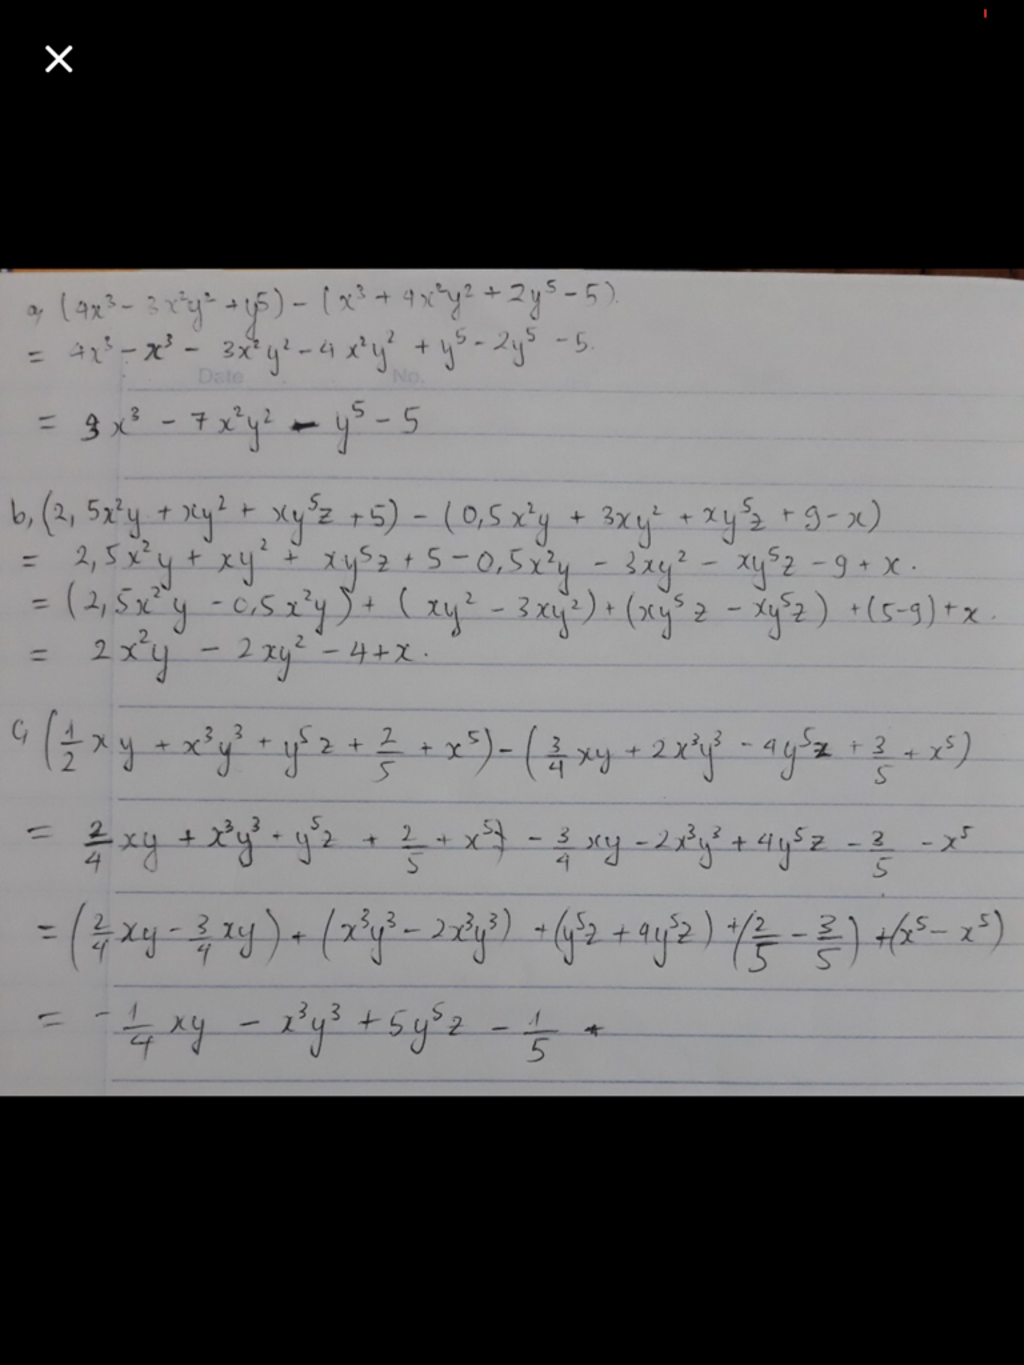 a, (4x³ - 3x²y² + y5) - (x³ + 4x²y² + 2y⁵ - 5).
= 4x³ - x³ - 3x²y² - 4x²y² + y⁵ - 2y⁵ - 5.
Date No.
= 3x³ - 7x²y² - y⁵ - 5
b, (2,5x²y + xy² + xy⁵z + 5) - (0,5x²y + 3xy² + xy⁵z + 9 - x)
= 2,5x²y + xy² + xy⁵z + 5 - 0,5x²y - 3xy² - xy⁵z - 9 + x.
= (2,5x²y - 0,5x²y) + (xy² - 3xy²) + (xy⁵z - xy⁵z) + (5-9) + x.
= 2x²y - 2xy² - 4 + x.
c, (1/2 xy + x³y³ + y⁵z + 2/5 + x⁵) - (3/4 xy + 2x³y³ - 4y⁵z + 3/5 + x⁵)
= 2/4 xy + x³y³ + y⁵z + 2/5 + x⁵ - 3/4 xy - 2x³y³ + 4y⁵z - 3/5 - x⁵
= (2/4 xy - 3/4 xy) + (x³y³ - 2x³y³) + (y⁵z + 4y⁵z) + (2/5 - 3/5) + (x⁵ - x⁵)
= - 1/4 xy - x³y³ + 5y⁵z - 1/5